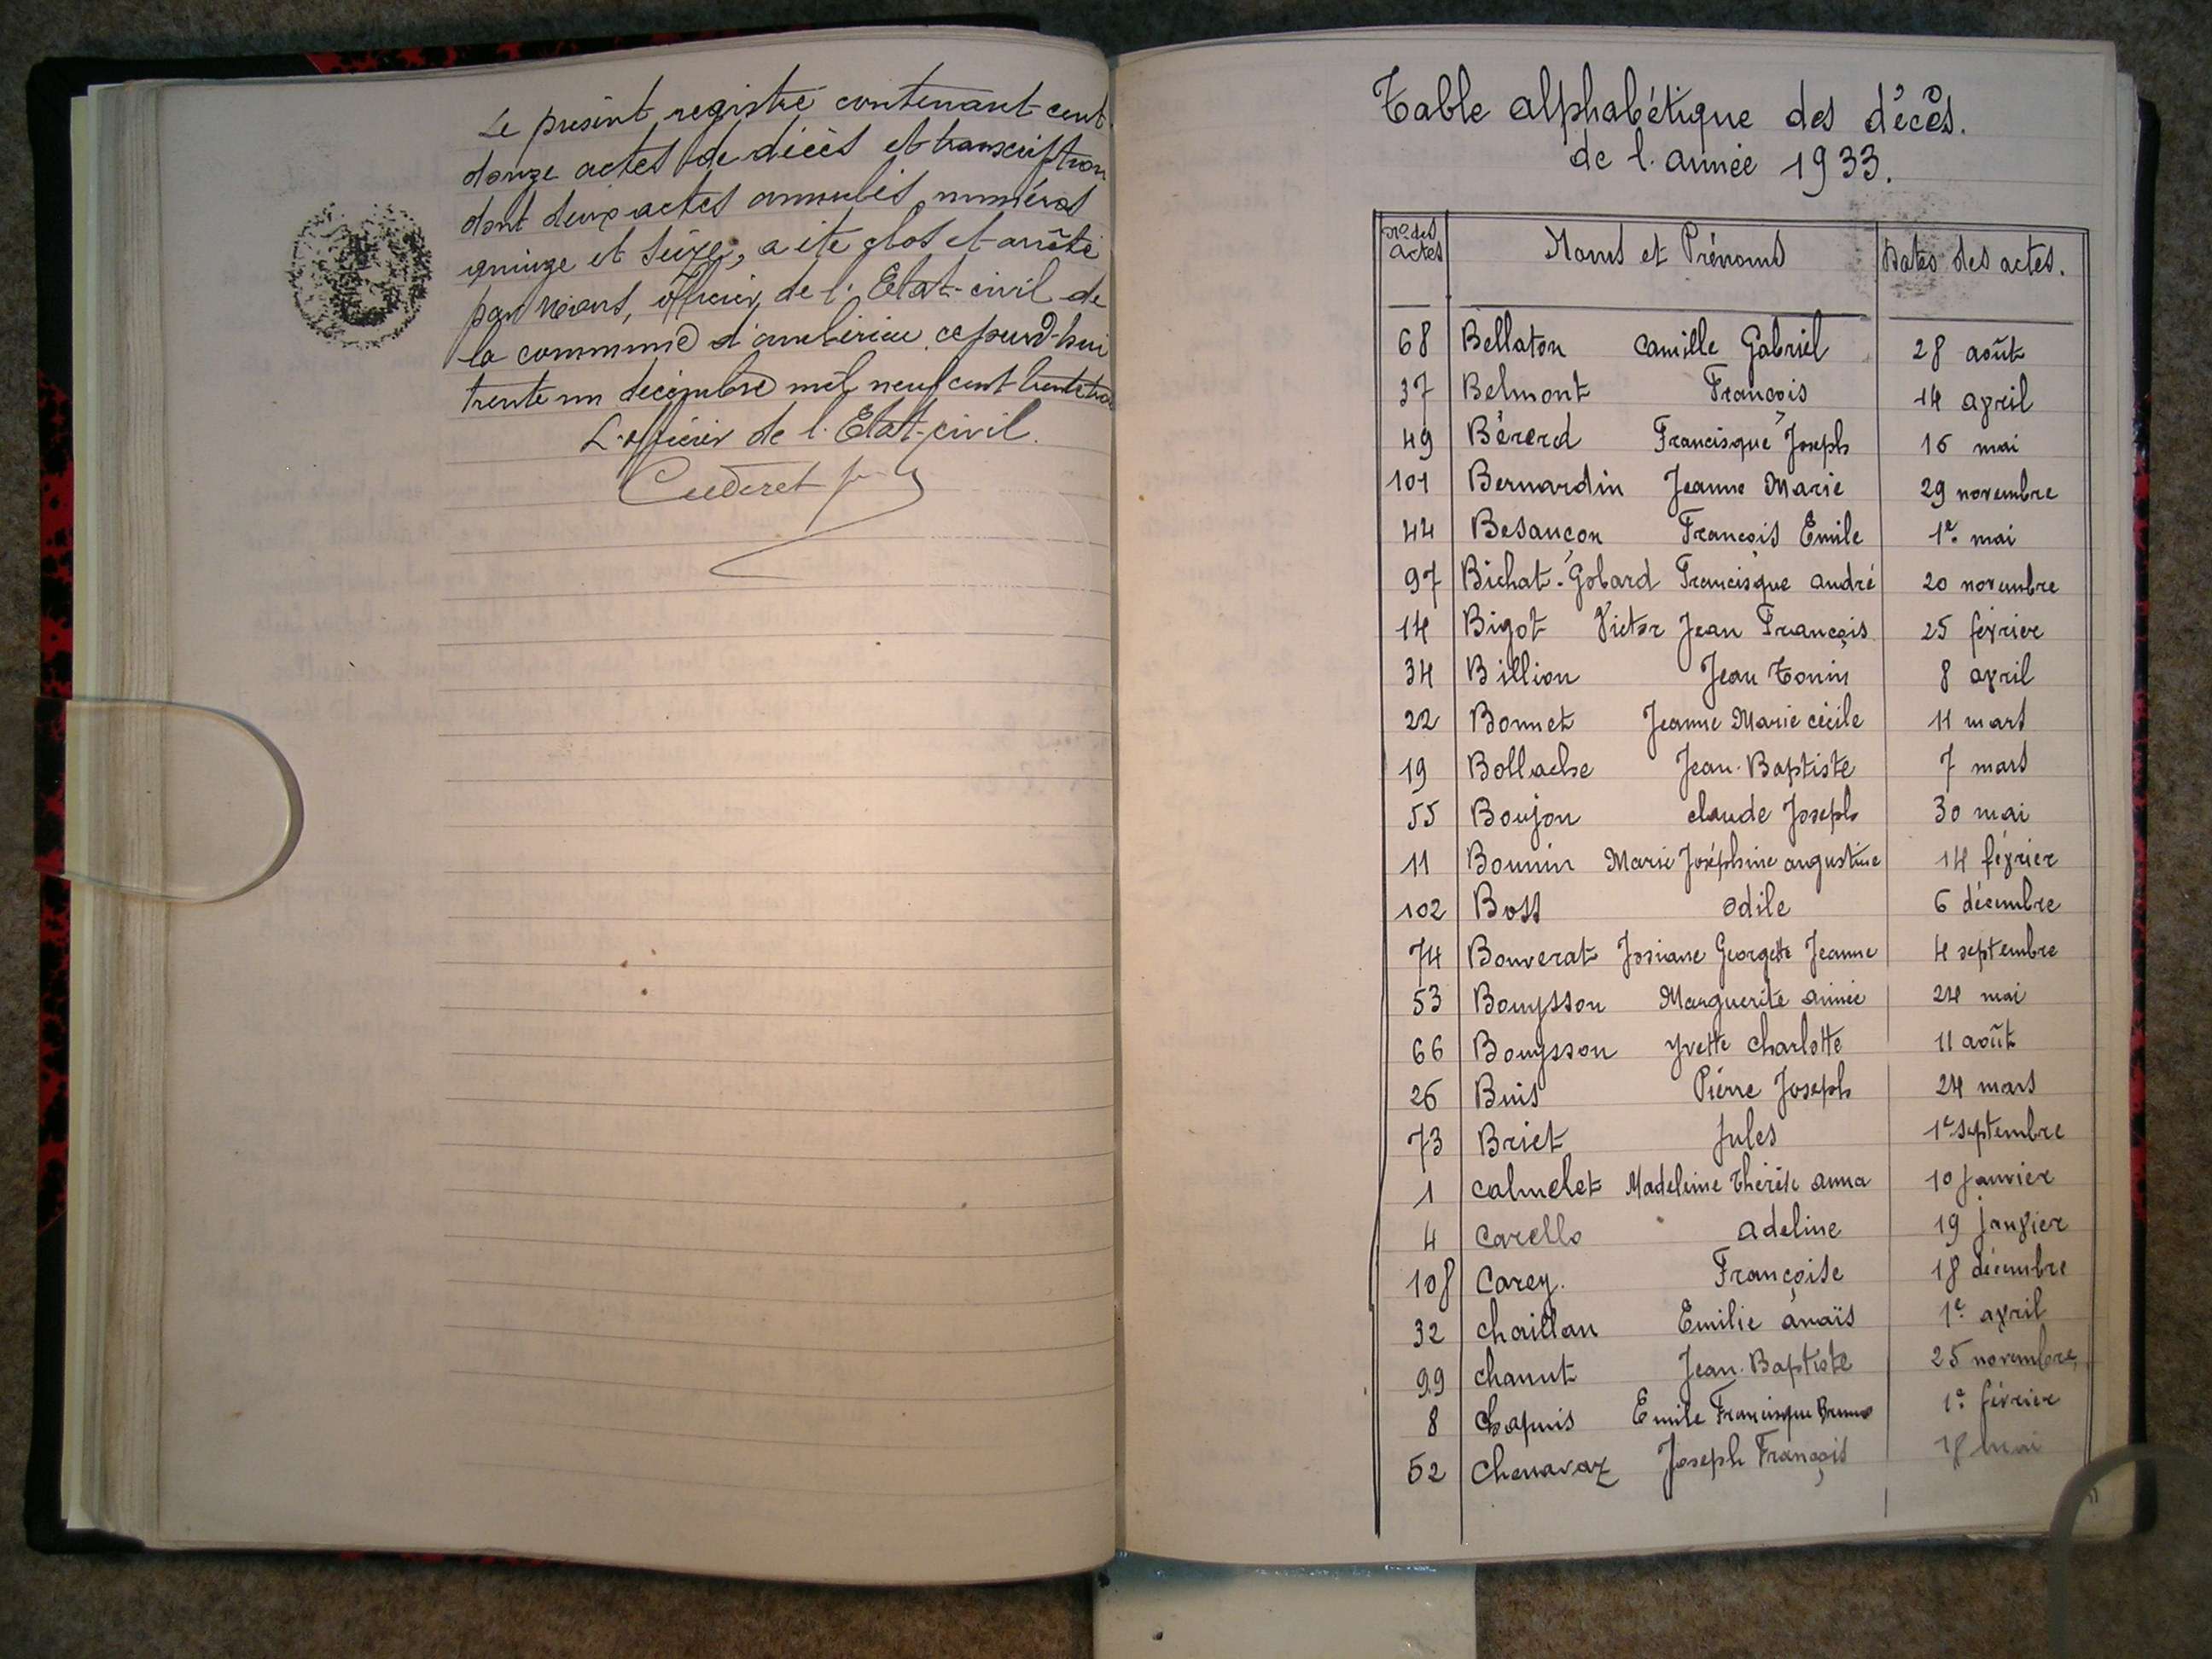 Le présent registre contenant cent
douze actes de décès et transcription
dont deux actes annulés, numéros
quinze et seize, a été clos et arrêté
par nous, officier de l'Etat-civil de
la commune d'ambérieu, ce jourd'hui
trente un décembre mil neuf cent trente trois
L'officier de l'Etat-civil.
Table alphabétique des décès.
de l'année 1933.
Nos des actes Noms et Prénoms Dates des actes.
68 Bellaton Camille Gabriel 28 août
37 Belmont François 14 avril
49 Bérerd Francisque Joseph 16 mai
101 Bernardin Jeanne Marie 29 novembre
44 Besançon François Emile 1er mai
97 Bichat-Gobard Francisque andré 20 novembre
14 Bigot Victor Jean François 25 février
34 Billion Jean Tonin 8 avril
22 Bonnet Jeanne Marie cécile 11 mars
19 Bollache Jean-Baptiste 7 mars
55 Boujon claude Joseph 30 mai
11 Bounin Marie Joséphine augustine 14 février
102 Boss odile 6 décembre
74 Bouverat Josiane Georgette Jeanne 4 septembre
53 Bouysson Marguerite aimée 24 mai
66 Bouysson Yvette charlotte 11 août
26 Buis Pierre Joseph 24 mars
73 Briet Jules 1er septembre
1 calmelet Madeleine Thérèse anna 10 janvier
4 carello adeline 19 janvier
108 carey. Françoise 18 décembre
32 chaillan Emilie anaïs 1er avril
99 chanut Jean-Baptiste 25 novembre
8 chapuis Emile Francisque Bruno 1er février
52 chenavaz Joseph François 18 mai